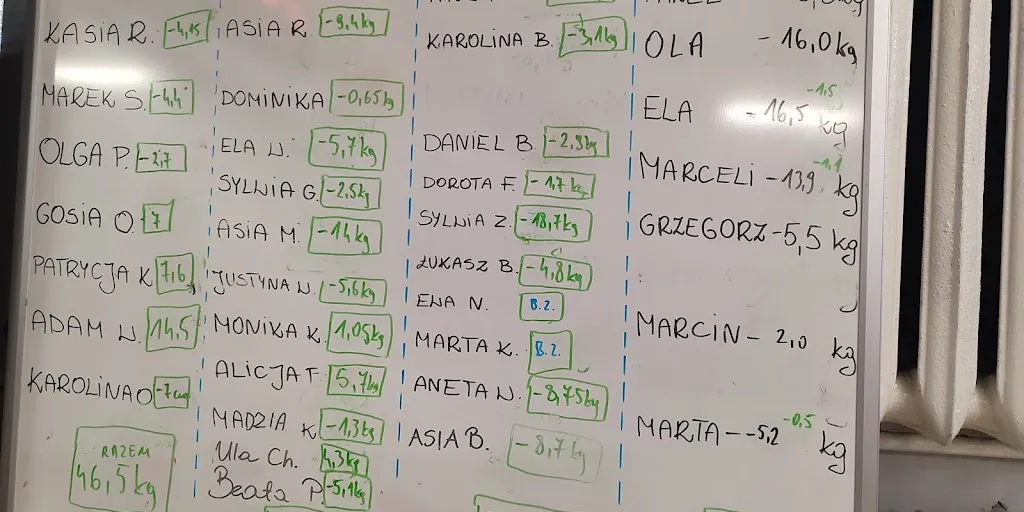 KASIA R. -4,15
MAREK S. -4,4
OLGA P. -2,7
GOSIA O. 7
PATRYCJA K 7,6
ADAM W. 14,5
KAROLINA O -7cm
RAZEM
46,5kg
ASIA R -9,4kg
DOMINIKA -0,65kg
ELA W. -5,7kg
SYLWIA G. -2,5kg
ASIA M. -14kg
JUSTYNA W. -5,6kg
MONIKA K. 1,05kg
ALICJA F. 5,7kg
MADZIA K -1,3kg
Ula Ch. 4,3kg
Beata P. -5,1kg
KAROLINA B. -3,1kg
DANIEL B. -2,9kg
DOROTA F. -1,7kg
SYLWIA Z. -18,7kg
ŁUKASZ B. -4,8kg
EWA N. B.Z.
MARTA K. B.Z.
ANETA W. -8,75kg
ASIA B. -8,7kg
OLA - 16,0kg
ELA - 16,5 -1,5 kg
MARCELI - 13,9 -1,1 kg
GRZEGORZ - 5,5 kg
MARCIN - 2,0 kg
MARTA - -5,2 -0,5 kg